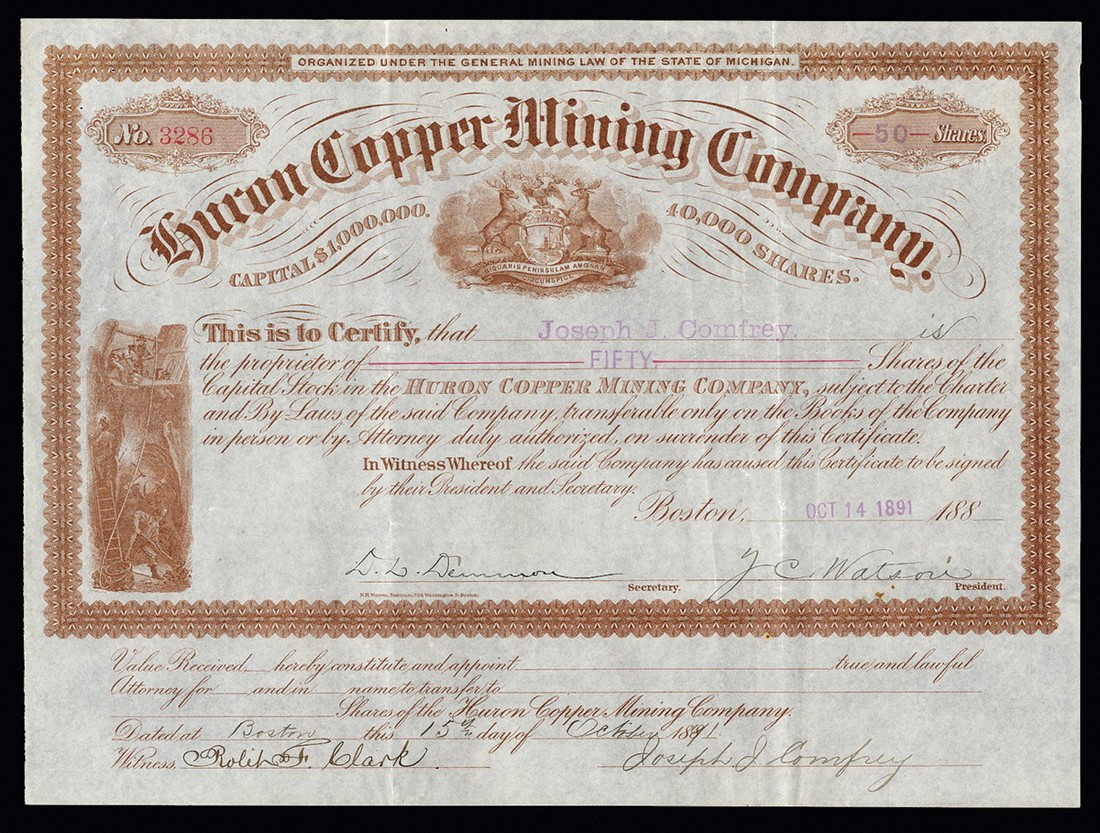 ORGANIZED UNDER THE GENERAL MINING LAW OF THE STATE OF MICHIGAN.
No. 3286
—50— Shares.
Huron Copper Mining Company.
CAPITAL $1,000,000.
40,000 SHARES.
SI QUÆRIS PENINSULAM AMŒNAM
CIRCUMSPICE
This is to Certify, that Joseph J. Comfrey. is
the proprietor of FIFTY Shares of the
Capital Stock in the HURON COPPER MINING COMPANY, subject to the Charter
and By Laws of the said Company, transferable only on the Books of the Company
in person or by Attorney duly authorized, on surrender of this Certificate.
In Witness Whereof the said Company has caused this Certificate to be signed
by their President and Secretary.
Boston, OCT 14 1891 188
D. L. Demmon Secretary. J C Watson President.
Value Received, hereby constitute and appoint true and lawful
Attorney for and in name to transfer to
Shares of the Huron Copper Mining Company.
Dated at Boston this 15th day of October 1891
Witness, F. Clark. Joseph J Comfrey